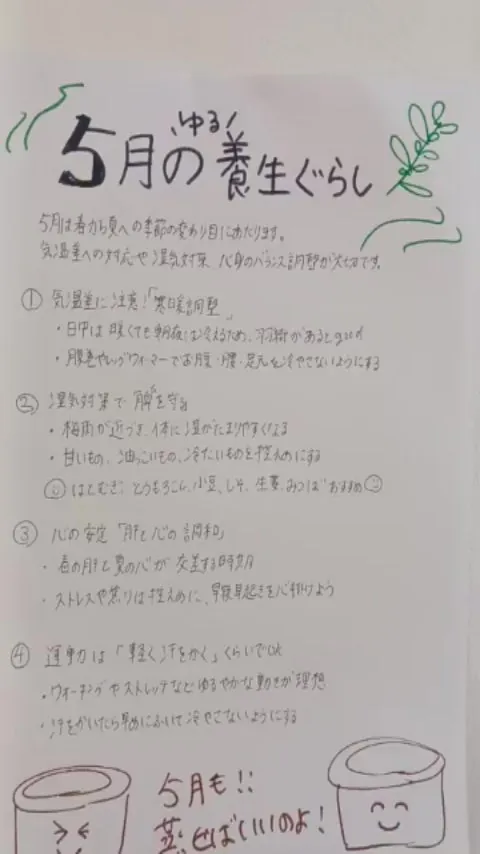 ゆる
5月の養生ぐらし
5月は春から夏への季節の変わり目にあたります。
気温差への対応や湿気対策 心身のバランス調整が大切です。
① 気温差に注意!「寒暖調整」
・日中は暖くても朝夜は冷えるため、羽織があるとgood
・腹巻やレッグウォーマーでお腹・腰・足元を冷やさないようにする
② 湿気対策で"脾"を守る
・梅雨が近づき、体に湿がたまりやすくなる
・甘いもの、油っこいもの、冷たいものを控えめにする
はとむぎ、とうもろこし、小豆、しそ、生姜、みつば おすすめ
③ 心の安定「肝と心の調和」
・春の肝と夏の心が交差する時期
・ストレスや怒りは控えめに、早寝早起きを心掛けよう
④ 運動は「軽く汗をかく」くらいでOK
・ウォーキングやストレッチなどゆるやかな動きが理想
・汗をかいたら早めにふいて冷やさないようにする
5月も!!
蒸せばいいのよ!